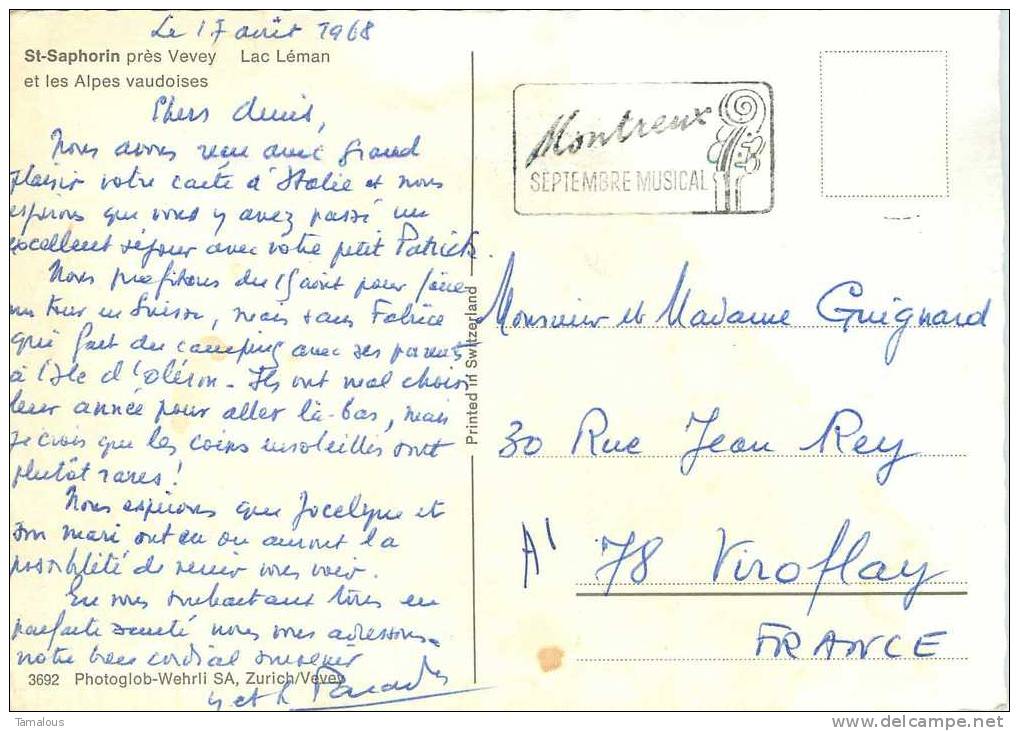 Le 17 août 1968
St-Saphorin près Vevey Lac Léman
et les Alpes vaudoises
Chers Amis,
Nous avons reçu avec grand
plaisir votre carte d'Italie et nous
espérons que vous y avez passé un
excellent séjour avec votre petit Patrick.
Nous profitons du 15 août pour faire
un tour en Suisse, mais sans Fabrice
qui fait du camping avec ses parents
à l'Ile d'Oléron. Ils ont mal choisi
leur année pour aller là-bas, mais
je crois que les coins ensoleillés sont
plutôt rares!
Nous espérons que Jocelyne et
son mari ont eu ou auront la
possibilité de venir vous voir.
En vous souhaitant tous en
parfaite santé nous vous adressons
notre bien cordial souvenir
3692 Photoglob-Wehrli SA, Zurich/Vevey
Printed in Switzerland
Montreux
SEPTEMBRE MUSICAL
Monsieur et Madame Guignard
30 Rue Jean Rey
A' 78 Viroflay
FRANCE
Tamalous
www.delcampe.net